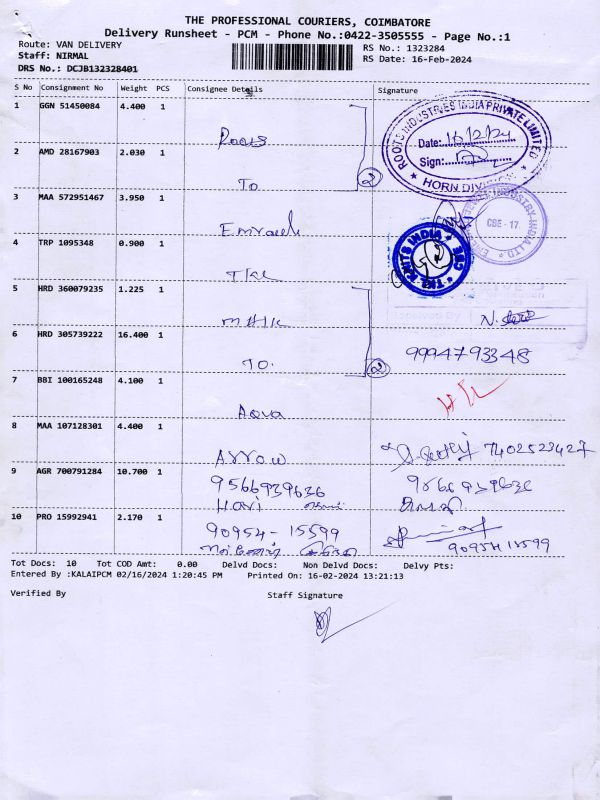 THE PROFESSIONAL COURIERS, COIMBATORE
Delivery Runsheet - PCM - Phone No.:0422-3505555 - Page No.:1
Route: VAN DELIVERY
RS No.: 1323284
Staff: NIRMAL
RS Date: 16-Feb-2024
DRS No.: DCJB132328401
S No Consignment No Weight PCS Consignee Details Signature
1 GGN 51450084 4.400 1
Roots
ROOTS INDUSTRIES INDIA PRIVATE LIMITED
Date: 16/2/24
Sign:
HORN DIVISION
2 AMD 28167903 2.030 1
To
2
3 MAA 572951467 3.950 1
CBE - 17.
4 TRP 1095348 0.900 1
TKL
TKL KNITS INDIA
5 HRD 360079235 1.225 1
Received By
6 HRD 305739222 16.400 1
To.
2
9994793348
7 BBI 100165248 4.100 1
Aqua
8 MAA 107128301 4.400 1
Arrow
7402523427
9 AGR 700791284 10.700 1
9566939636
Hari
10 PRO 15992941 2.170 1
90954-15599
9095415599
Tot Docs: 10 Tot COD Amt: 0.00 Delvd Docs: Non Delvd Docs: Delvy Pts:
Entered By :KALAIPCM 02/16/2024 1:20:45 PM Printed On: 16-02-2024 13:21:13
Verified By Staff Signature